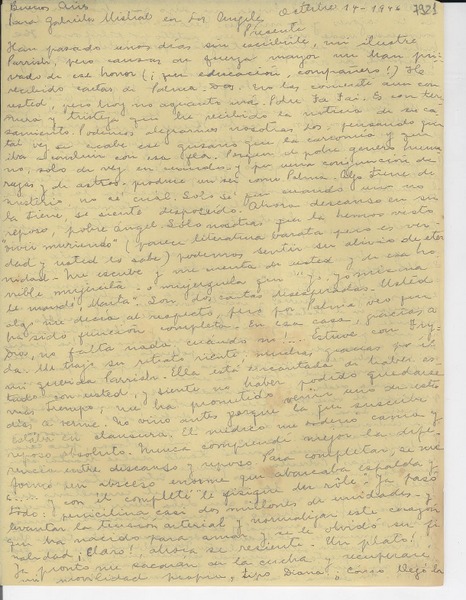 Buenos Aires Octubre 14-1946 1321
Para Gabriela Mistral en Los Angeles
Presente
Han pasado unos días sin escribirte, mi ilustre
Parrish, pero causas de fuerza mayor me han pri-
vado de ese honor (¡ qué educación, compañero!) He
recibido cartas de Palma. Dos. No las contesté aún
usted, pero hoy no aguanto más. Pobre Fa Fai. Es con ter
nura y tristeza que he recibido la noticia de su ca
samiento. Podemos alegrarnos nosotras dos, pensando que
tal vez se acabe ese gusano que la carcomía y que
iba a concluir con esa vida. Porque el pobre genero huma
no, solo de vez en cuando, y por una conjunción de
rayos y de astros, produce un ser como Palma. Algo tiene de
misterio no sé cuál. Solo sé que cuando uno no
la tiene, se siente despojado. Ahora descanso en su
reposo, pobre ángel. Solo nosotras que la hemos visto
"vivir muriendo" (parece literatura barata pero es ver-
dad y usted lo sabe) podemos sentir su alivio de eter
nidad. Me escribe y me cuenta de usted y de esa ho
rrible mujercita o mujerzuela que "yo, yo misma
le mandé, Marta". Son dos cartas desesperadas. Usted
algo me decía al respecto, pero por Palma veo que
ha sido función completa. En esa casa, gracias a
Dios, no falta nada cuando no... Estuve con Fry-
da. Me trajo su retrato riente, muchas gracias por él
mi querida Parrish. Ella está encantada de haber es-
tado con usted, y siente no haber podido quedarse
más tiempo, me ha prometido venir uno de estos
días a verme. No vino antes porque la que suscribe
estaba en clausura. El médico me ordenó cama y
reposo absoluto. Nunca comprendí mejor la dife-
rencia entre descanso y reposo. Para completar, se me
formó un absceso enorme que abarcaba espalda y
"c...." y con él completé le físique du rôle. Ya pasó
todo: penicilina casi dos millones de unidades y
levantar la tensión arterial y normalizar este corazón
que ha nacido para amar y se le olvidó su fi
nalidad, ¡Claro! ahora se resiente. Un plato!
Ya pronto me sacarán de la cucha y recuperaré
mi movilidad propia, tipo Diana,